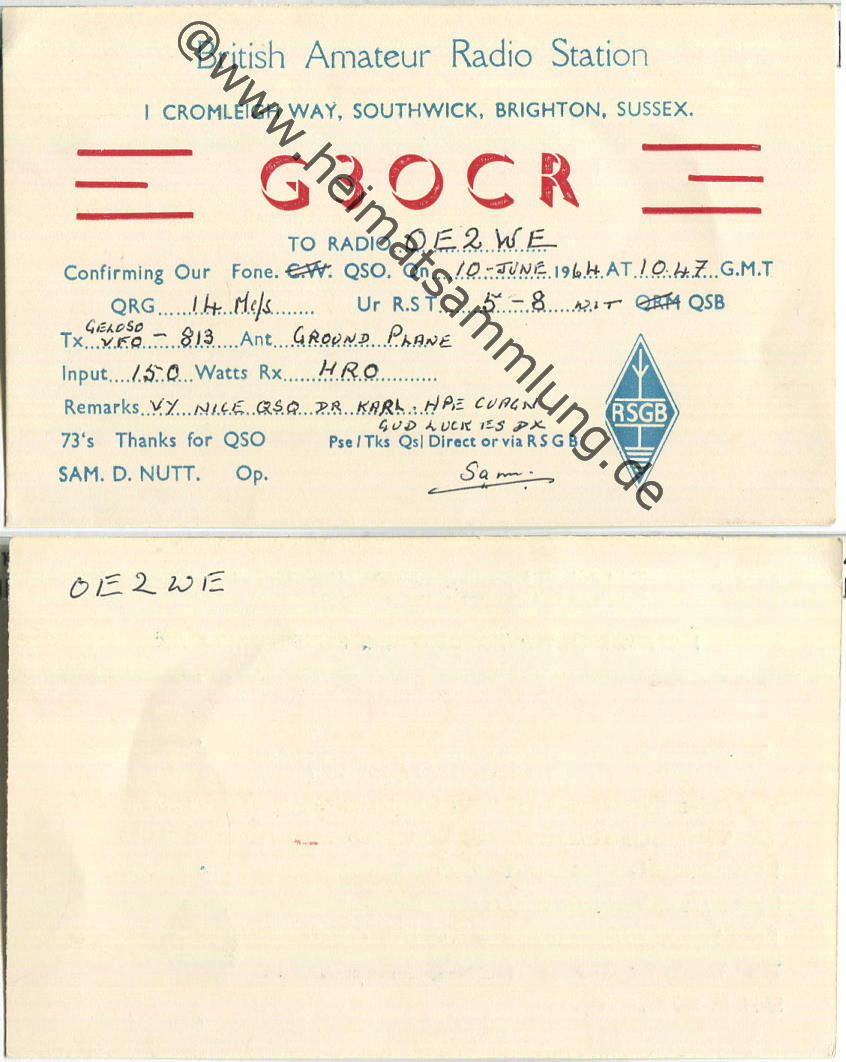 British Amateur Radio Station
1 CROMLEIGH WAY, SOUTHWICK, BRIGHTON, SUSSEX.
G3OCR
TO RADIO OE2WE
Confirming Our Fone. C.W. QSO. On 10-JUNE 1964 AT 1047 G.M.T
QRG 14 Mc/s Ur R.S.T 5-8 QRM QSB
GELOSO
Tx VFO - 813 Ant GROUND PLANE
Input 150 Watts Rx HRO
Remarks VY NICE QSO DR KARL. HPE CUAGN
GUD LUCK ES DX
73's Thanks for QSO Pse/Tks Qsl Direct or via R S G B
RSGB
SAM. D. NUTT. Op. Sam.
@www.heimatsammlung.de
OE2WE